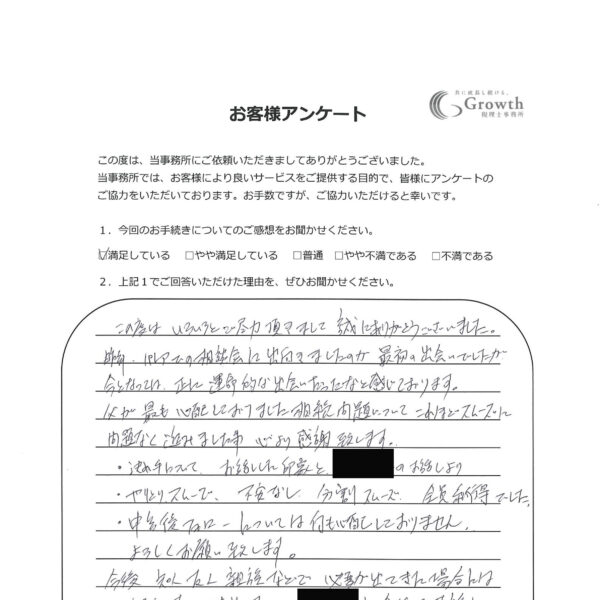 共に成長し続ける。
Growth
税理士事務所
お客様アンケート
この度は、当事務所にご依頼いただきましてありがとうございました。
当事務所では、お客様により良いサービスをご提供する目的で、皆様にアンケートの
ご協力をいただいております。お手数ですが、ご協力いただけると幸いです。
1．今回のお手続きについてのご感想をお聞かせください。
☑満足している □やや満足している □普通 □やや不満である □不満である
2．上記１でご回答いただけた理由を、ぜひお聞かせください。
この度は いろいろとご尽力頂きまして 誠にありがとうございました。
での相談会に出向きましたのが 最初の出会いでしたが
今となっては、正に 運命的な出会いだったなと感じております。
父が 最も 心配しておりました 相続問題について これほどスムーズに
問題なく 進みました事 心より 感謝致します。
・決め手について、お話しした印象と、 のお話しより
・やりとりスムーズで、不安なし 分割スムーズ、全員納得でした。
・申告後フォローについては何も心配しておりません。
よろしくお願い致します。
今後 知人 友人 親族などで 必要が出てきた場合には